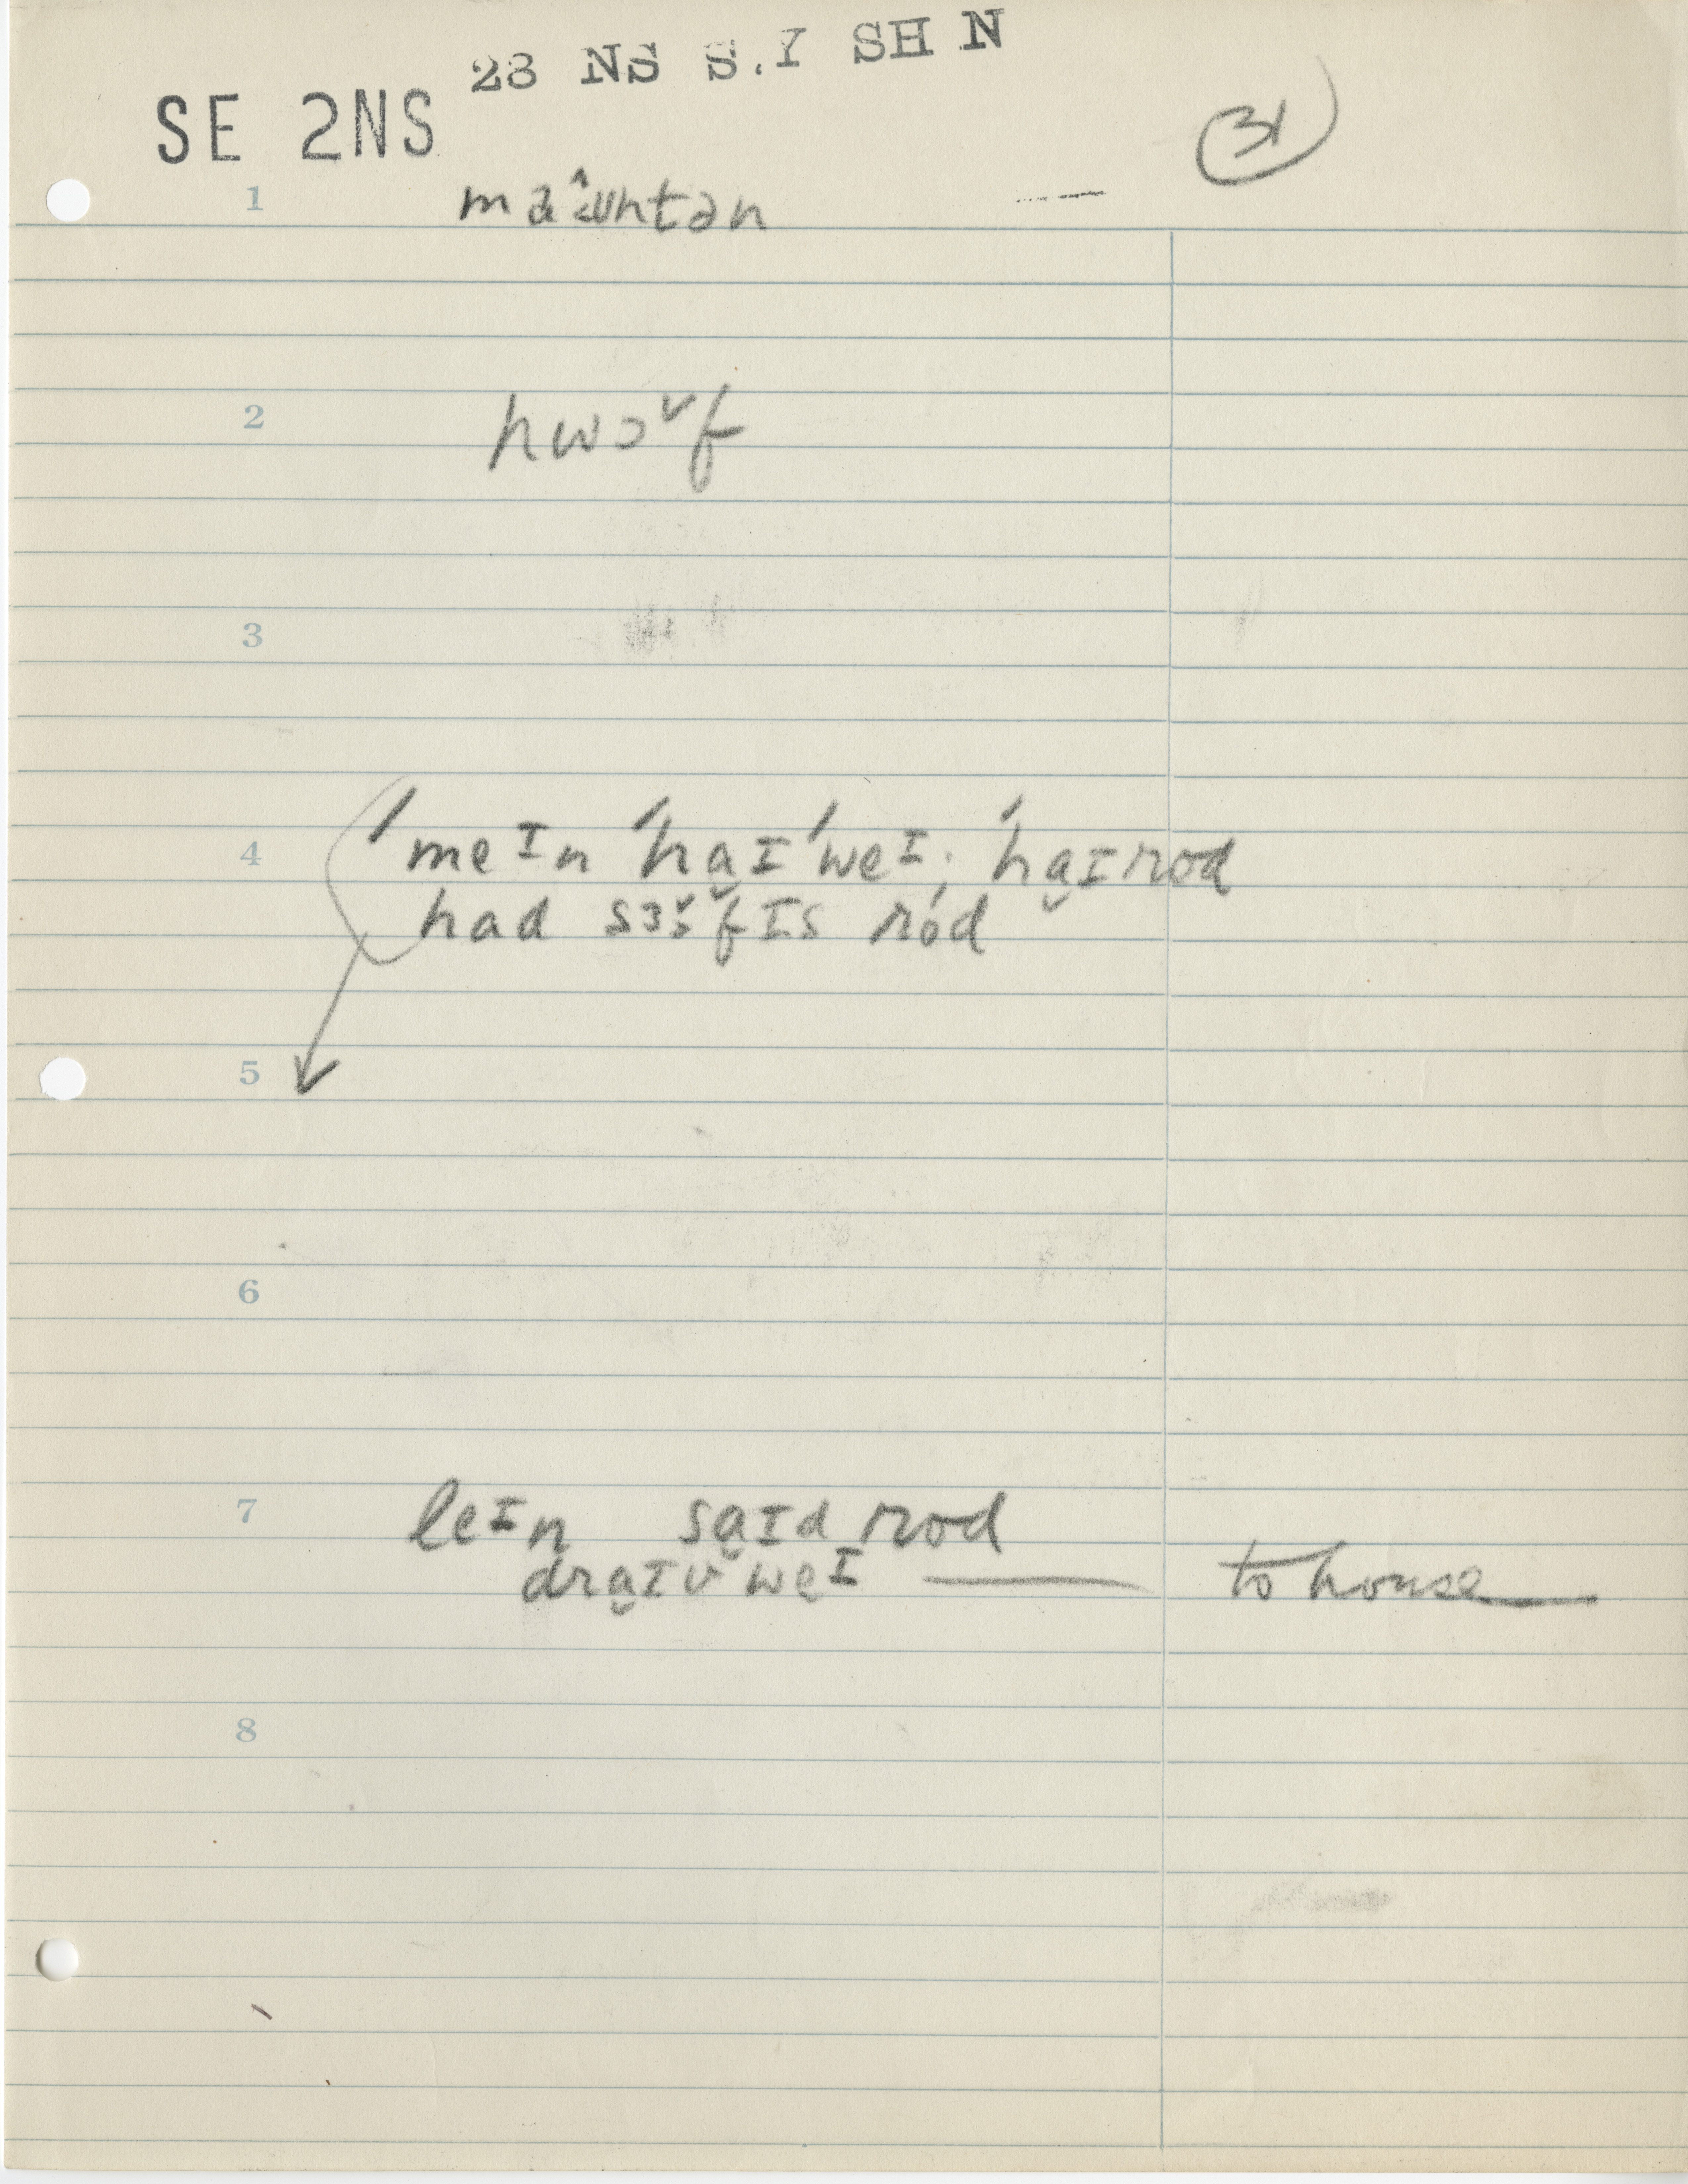 28 NS S.Y SH N
SE 2NS
31
1 maˆʊntən
2 hwɔˇf
3
4 ˈmeɪn ˈha̬ɪˈweɪ; ˈha̬ɪrod
had sɜˑˇfɪs ród
5
6
7 leɪn sa̬ɪd rod
dra̬ɪv weɪ — to house
8